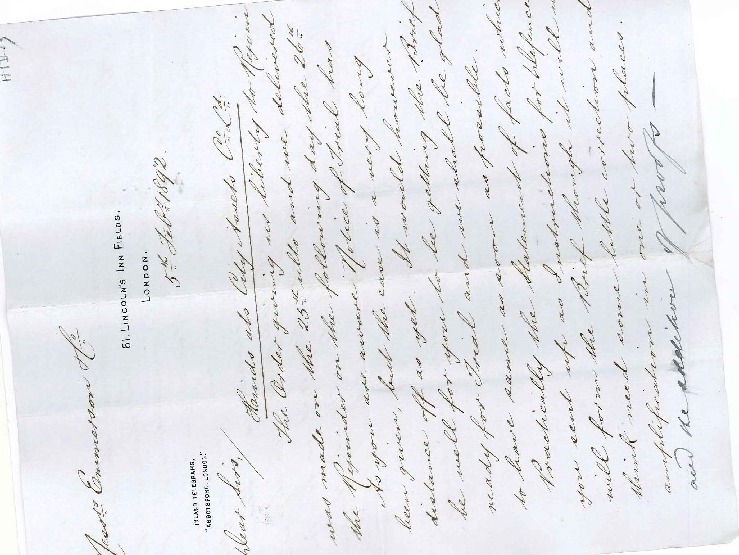 61, LINCOLN'S INN FIELDS,
LONDON.
5th Feby 1892
INLAND TELEGRAMS,
"ABBOTSFORD, LONDON."
Emmerson & Co
Dear Sirs/
Hinds ats City Assets Co Ld
The Order giving us liberty to Rejoin
was made on the 25th ulto and we delivered
the Rejoinder on the following day the 26th
As you are aware Notice of Trial has
been given, but the case is a very long
distance off as yet. It would however
be well for you to be getting the Brief
ready for Trial and we shall be glad
to have same as soon as possible.
Practically the Statement of facts which
you sent up as Instructions for Defence
will form the Brief though it will
think need some little correction and
amplification in one or two places.
and the addition of proofs —